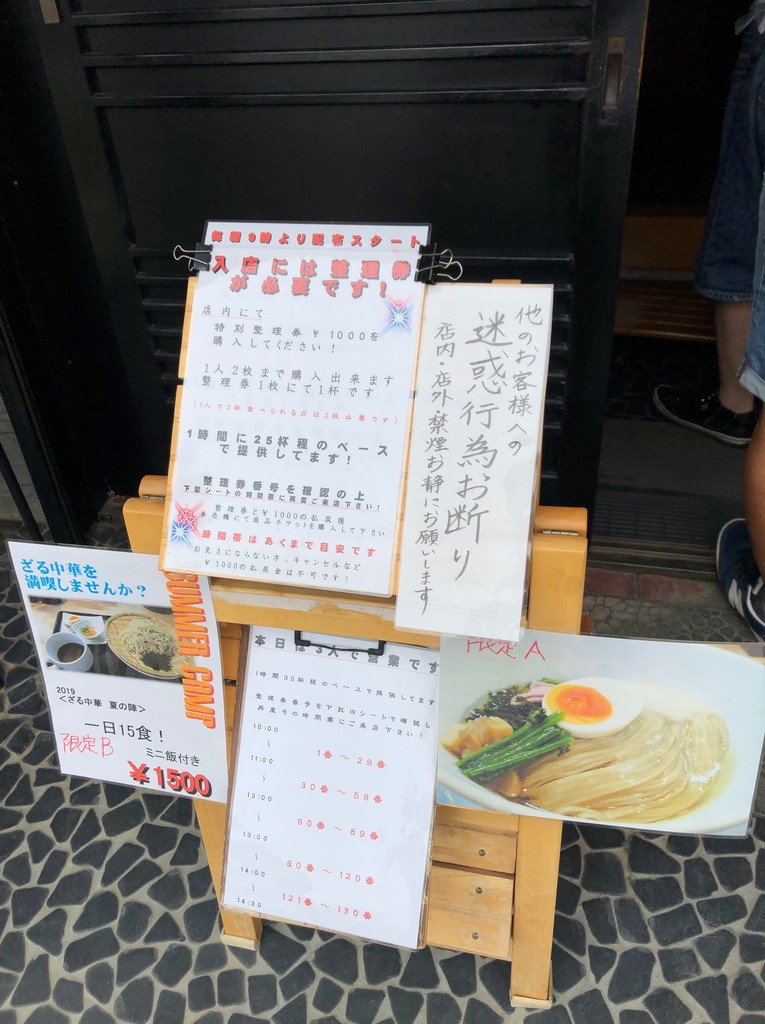 毎朝9時より配布スタート
入店には整理券
が必要です!
店内にて
特別整理券¥1000を
購入してください!
1人2枚まで購入出来ます
整理券1枚にて1杯です
(1人で2杯食べられる方は2枚必要です)
1時間に25杯程のペース
で提供してます!
整理券番号を確認の上
下記シートの時間帯に再度ご来店下さい!
整理券と¥1000の払戻後
券売機にて商品チケットを購入して下さい
時間帯はあくまで目安です
お見えにならない方、キャンセルなど
¥1000の払戻金は不可です!
他のお客様への
迷惑行為お断り
店内・店外・禁煙お静にお願いします
ざる中華を
満喫しませんか?
SUMMER CAMP
2019
<ざる中華 夏の陣>
一日15食!
限定B
ミニ飯付き
¥1500
本日は3人で営業です
1時間30杯程のペースで提供してます
整理券番号を下記のシートで確認し
再度その時間帯にご来店下さい!
10:00
~
1番~29番
11:00
~
30番~59番
12:00
~
60番~89番
13:00
~
90番~120番
14:00
~
121番~130番
14:30
限定A